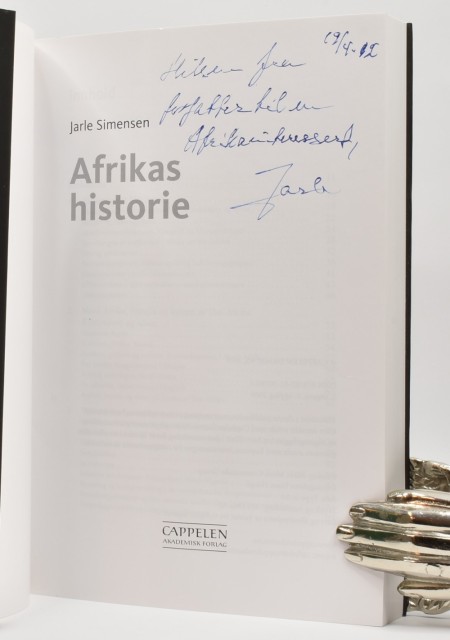 19/4-12
Hilsen fra
forfatter til en
Afrikainteressert,
Jarle
Jarle Simensen
Afrikas
historie
CAPPELEN
AKADEMISK FORLAG